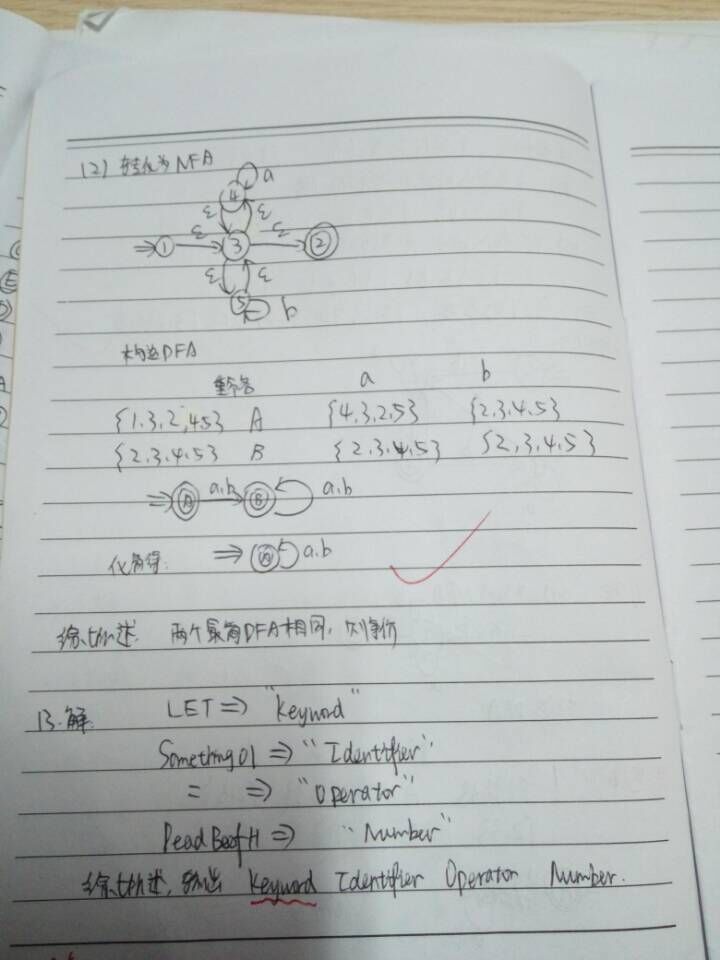 (2) 转化为NFA
a
4
ε ε
⇒ 1 ε 3 ε 2
ε ε
5 b
构造DFA
重命名 a b
{1.3.2,4.5} A {4.3.2.5} {2.3.4.5}
{2.3.4.5} B {2.3.4.5} {2,3,4.5}
⇒ A a.b B a.b
化简得: ⇒ A a.b
综上所述. 两个最简DFA相同, 则等价
13.解. LET ⇒ "Keyword"
Something01 ⇒ "Identifier"
= ⇒ "Operator"
DeadBeefH ⇒ "Number"
综上所述, 输出 Keyword Identifier Operator Number.